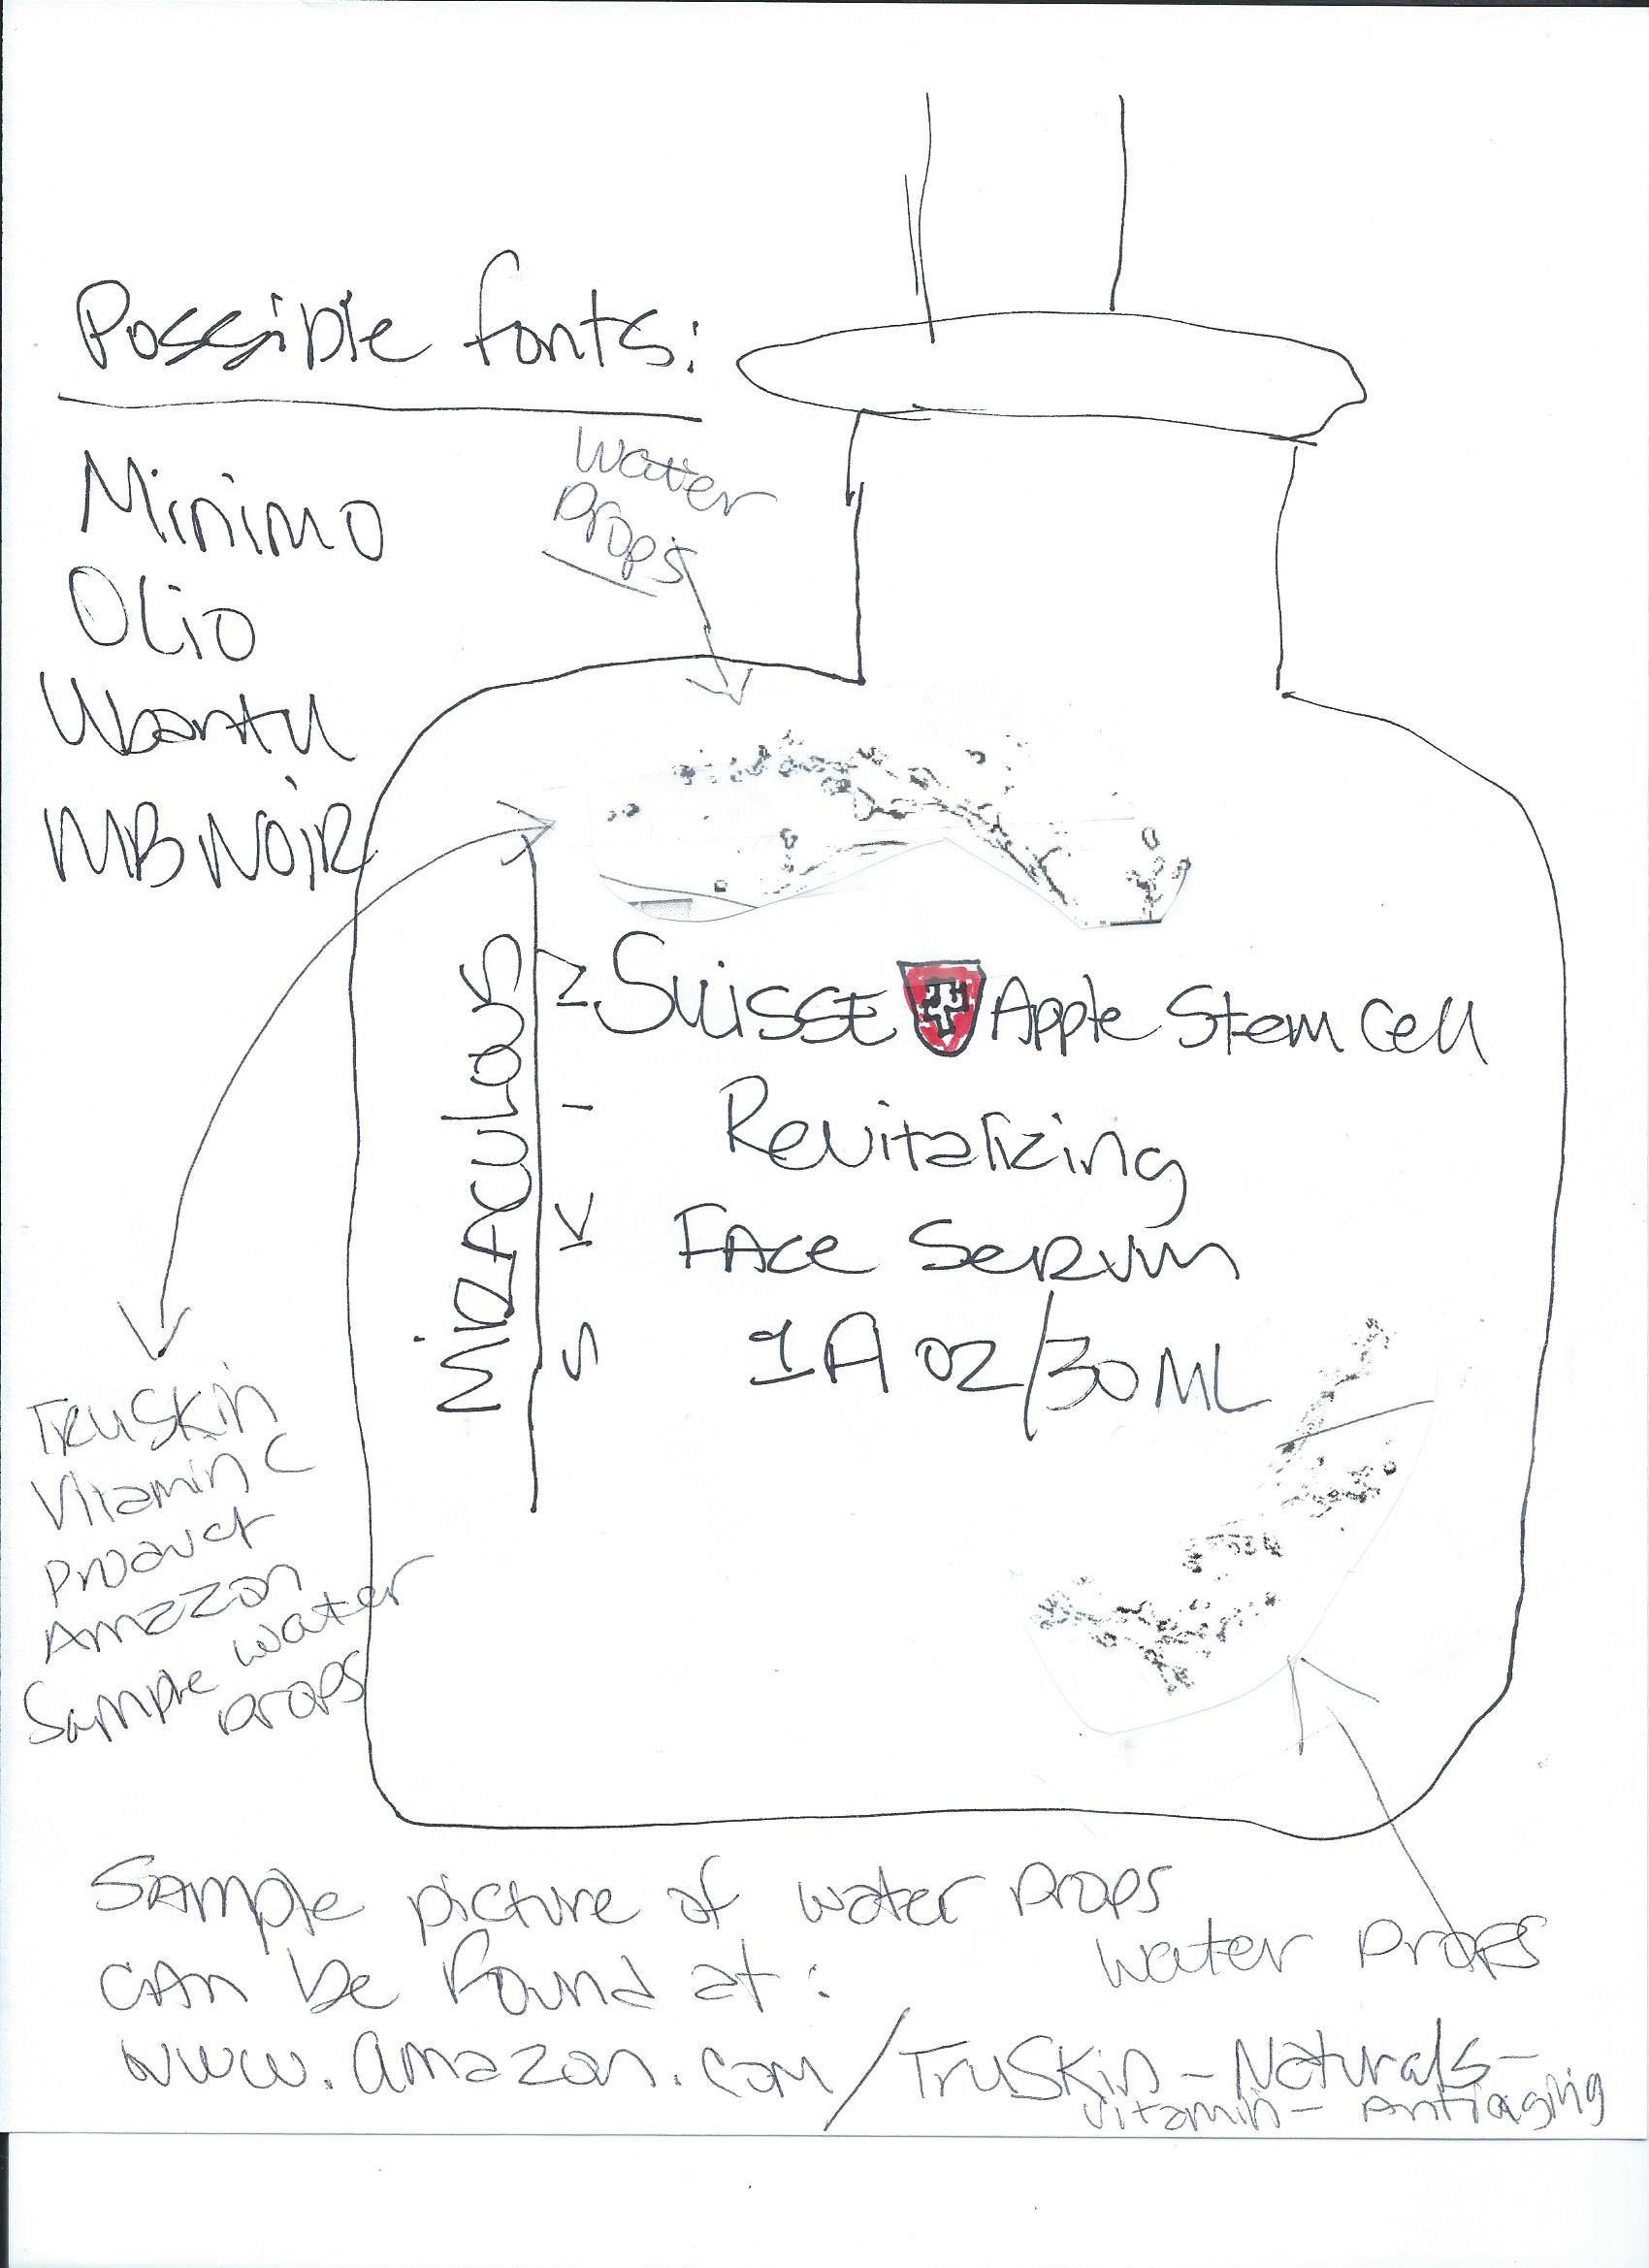 Possible fonts:
Minimo
Olio
Ubantu
MB NOIR
Water
Drops
Miraculous
SKIN
Suisse Apple Stem Cell
Revitalizing
Face Serum
1 fl oz/30 ML
TruSkin
Vitamin C
Product
Amazon
Sample water
Drops
Water Drops
Sample picture of water Drops
can be found at:
www.amazon.com/TruSkin-Naturals-
Vitamin-Antiaging